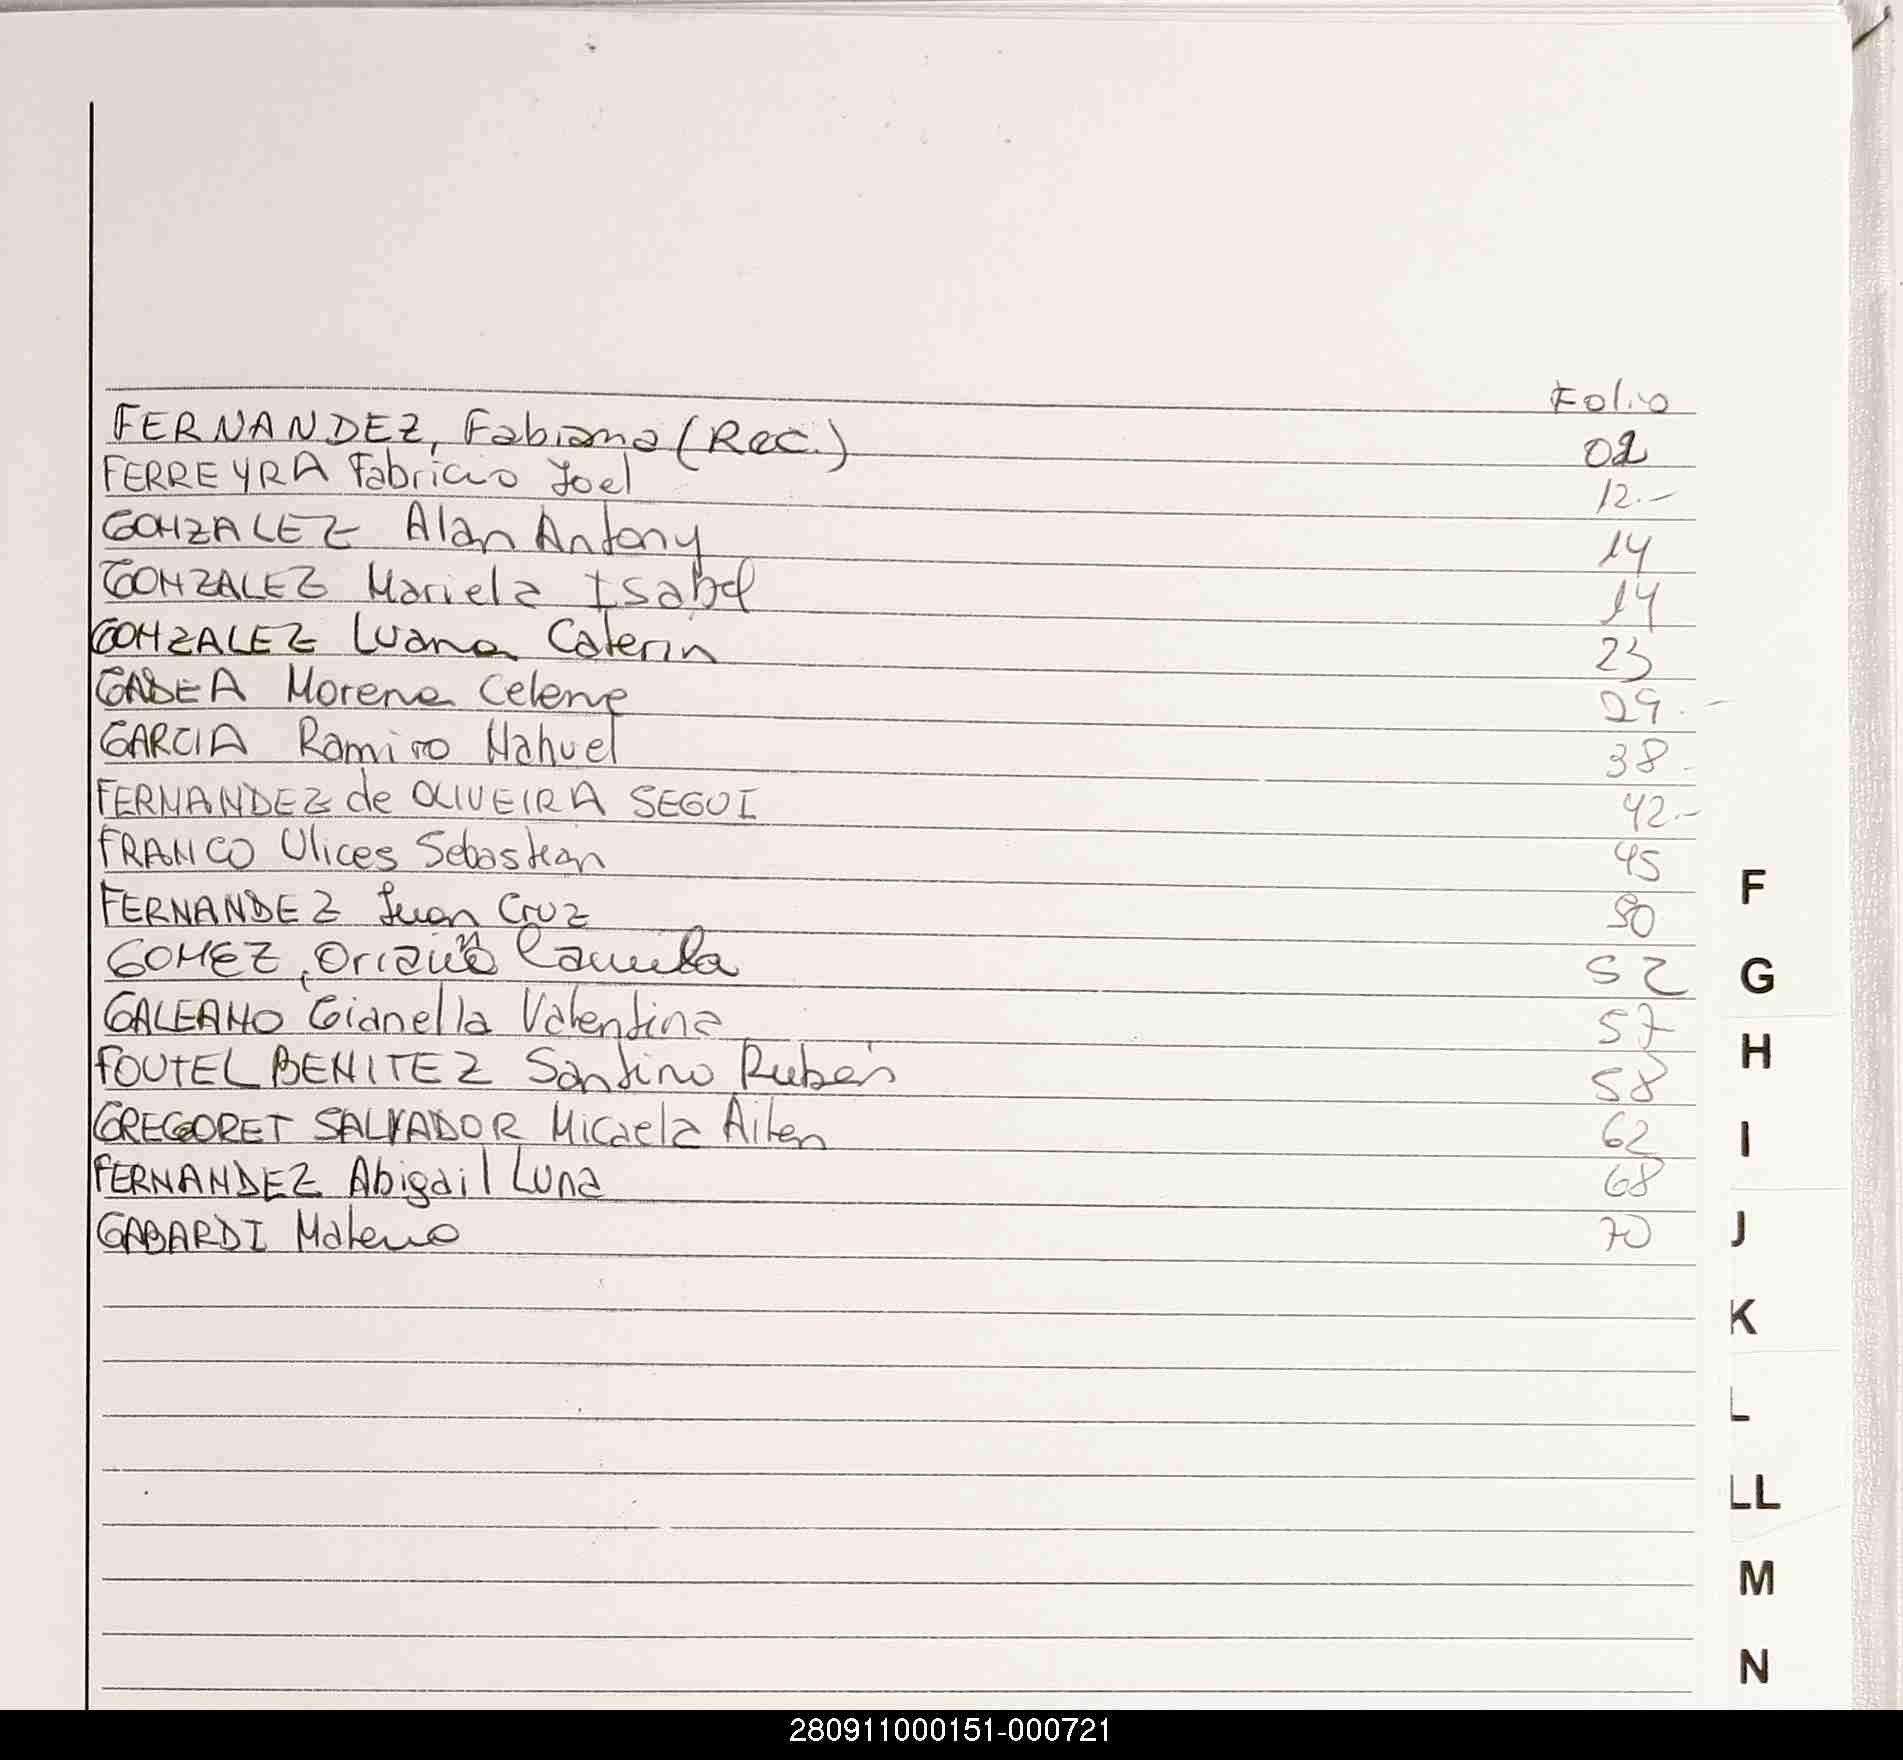 Folio
FERNANDEZ, Fabiana (Rec.) 02
FERREYRA Fabricio Joel 12.-
GONZALEZ Alan Antony 14
GONZALEZ Mariela Isabel 14
GONZALEZ Luana Caterin 23
GADEA Morena Celene 29.-
GARCIA Ramiro Nahuel 38-
FERNANDEZ de OLIVEIRA SEGUI 42.-
FRANCO Ulices Sebastian 45
FERNANDEZ Juan Cruz 50
GOMEZ, Oriana Camila 52
GALEANO Gianella Valentina 57
FOUTEL BENITEZ Santino Rubén 58
GREGORET SALVADOR Micaela Ailen 62
FERNANDEZ Abigail Luna 68
GABARDI 70
F
G
H
I
J
K
L
LL
M
N
280911000151-000721